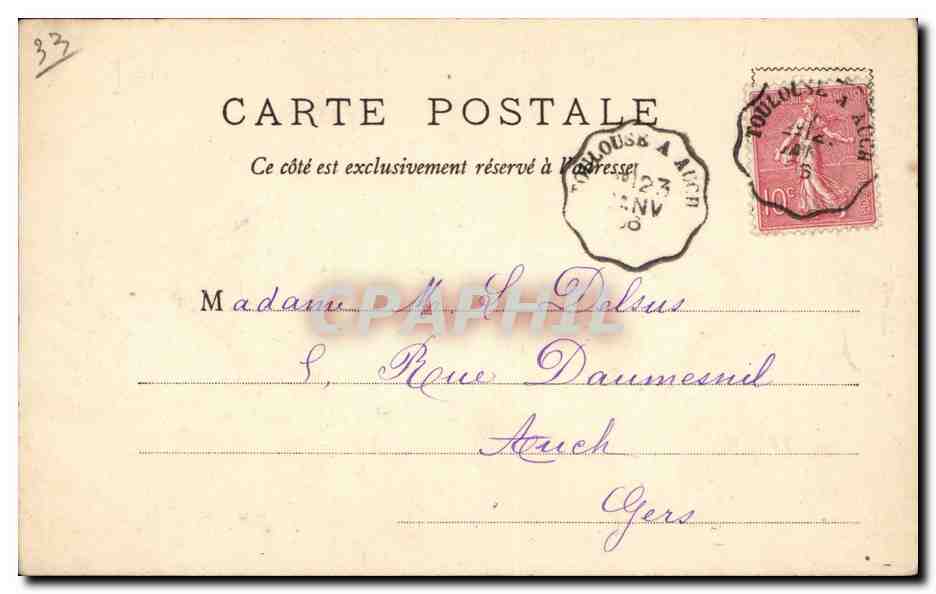 33
CARTE POSTALE
Ce côté est exclusivement réservé à l'adresse
TOULOUSE A AUCH
23
JANV
TOULOUSE A AUCH
10c
Madame M. L Delsus
5, Rue Daumesnil
Auch
Gers
CPAPHIL